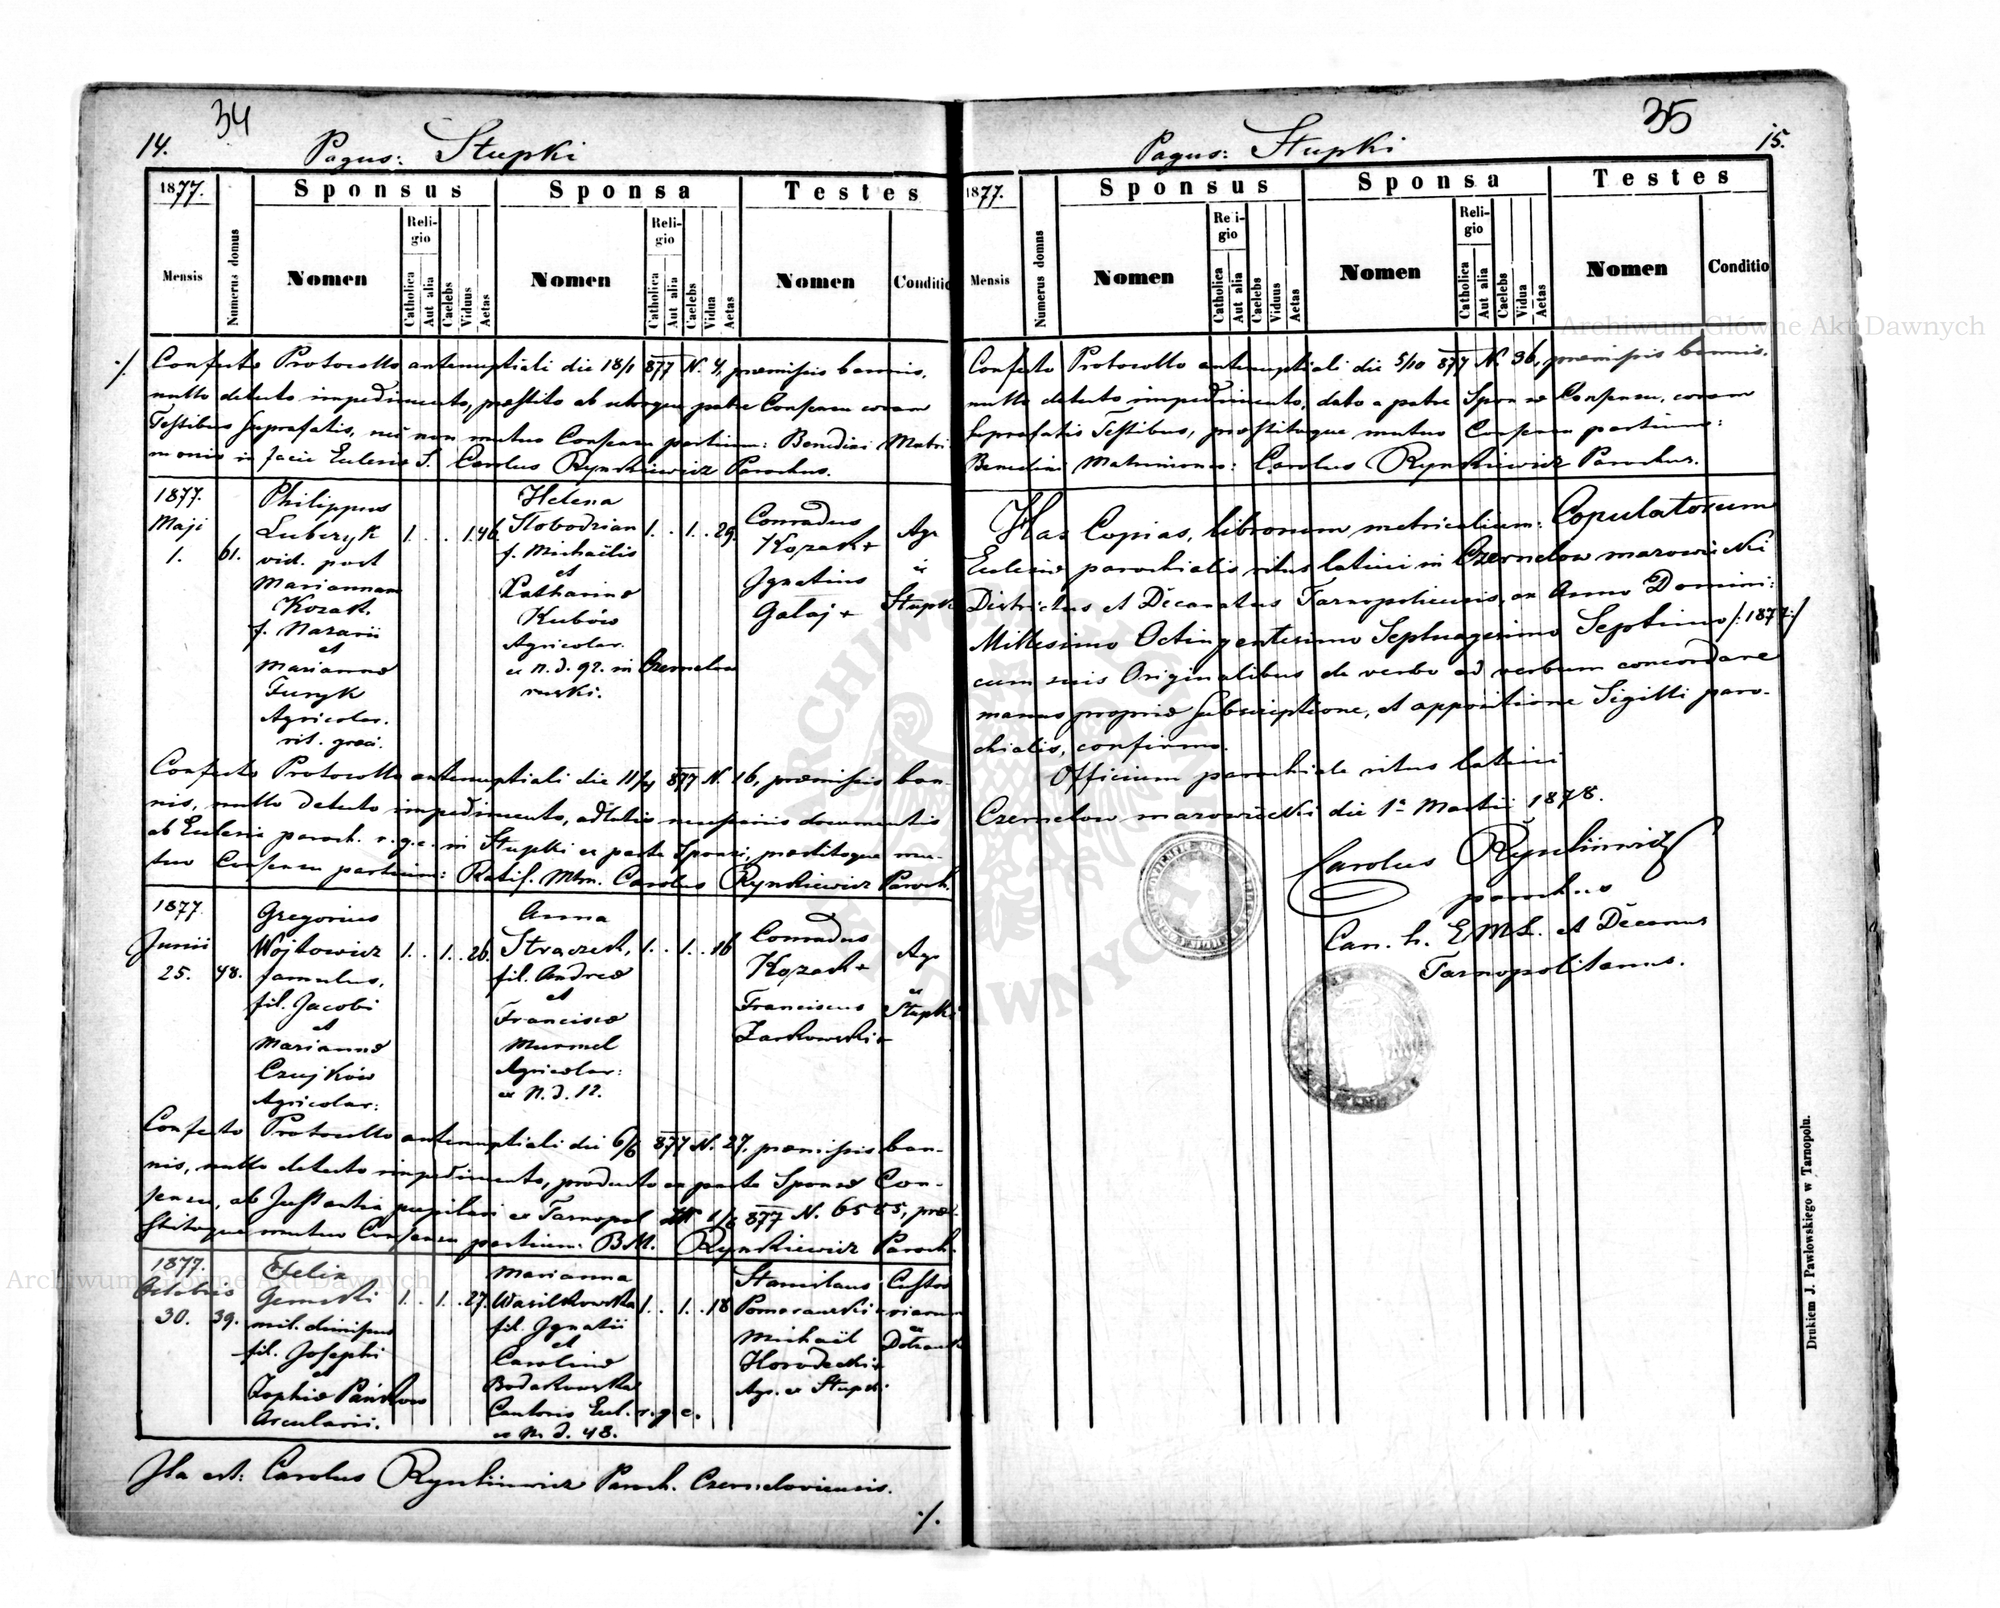 34
14.
Pagus: Stupki
1877.
Sponsus
Sponsa
Testes
Mensis
Numerus domus
Nomen
Religio
Catholica
Aut alia
Caelebs
Viduus
Aetas
Nomen
Religio
Catholica
Aut alia
Caelebs
Vidua
Aetas
Nomen
Conditio
./. Confecto Protocollo antenuptiali die 18/1 877 N. 4, præmissis bannis,
nullo detecto impedimento, præstito ab utroque patre Consensu coram
Testibus suprafatis, nec non mutuo Consensu partium: Benedixi Matri-
monio in facie Eclesiæ S. Carolus Rynkiewicz Parochus.
1877.
Maji
1.
61.
Philippus
Luberyk
vid. post
Mariannam
Kozak
f. Nazarii
et
Mariannæ
Furyk
Agricolar.
rit. græci.
1. . . 1. 46.
Helena
Slobodzian
f. Michaëlis
et
Catharinæ
Kubów
Agricolar.
ex N. d. 92. in Czernelow
ruski.
1. . 1. . 29.
Conradus
Kozak +
Ignatius
Galaj +
Agr.
ex
Stupki
Confecto Protocollo antenuptiali die 11/4 877 N. 16, præmissis ban-
nis, nullo detecto impedimento, adlatis necessariis documentis
ab Eclesia paroch. r. g. c. in Stupki ex parte Sponsi, præstitoque mu-
tuo Consensu partium: Ratif. Mtm. Carolus Rynkiewicz Paroch.
1877
Junii
25.
48.
Gregorius
Wojkowicz
famulus,
fil. Jacobi
et
Mariannæ
Czujków
Agricolar:
1. . 1. . 26.
Anna
Straczek,
fil. Andreæ
et
Franciscæ
Murmel
Agricolar:
ex N. d. 12.
1. . 1. . 16
Conradus
Kozak +
Franciscus
Zarkowski +
Agr.
ex
Stupki
Confecto Protocollo antenuptiali die 6/6 877 N. 27, præmissis ban-
nis, nullo detecto impedimento, producto ex parte Sponsæ Con-
sensu, ab Instantia pupilari ex Tarnopol 1/6 877 N. 6585, præ-
stitoque mutuo Consensu partium: B.M. Rynkiewicz Paroch.
1877.
Octobris
30.
39.
Felix
Gemski
mil. dimissus
fil. Josephi
et
Zophiæ Pańków
Arcularii.
1. . 1. . 27.
Marianna
Wasilkowska
fil. Ignatii
et
Carolinæ
Bodakowska
Cantoris Ecl. r. g. c.
ex N. d. 48.
1. . 1. . 18
Stanislaus
Pomeranski
Michaël
Horodecki +
Agr. ex Stupki
ex
Ita est: Carolus Rynkiewicz Paroch. Czerneloviensis.
./.
35
15.
Pagus: Stupki
1877.
Sponsus
Sponsa
Testes
Mensis
Numerus domus
Nomen
Religio
Catholica
Aut alia
Caelebs
Viduus
Aetas
Nomen
Religio
Catholica
Aut alia
Caelebs
Vidua
Aetas
Nomen
Conditio
Confecto Protocollo antenuptiali die 5/10 877 N. 36, præmissis bannis,
nullo detecto impedimento, dato a patre Sponsæ Consensu, coram
suprafatis Testibus, præstitoque mutuo Consensu partium:
Benedixi Matrimonio: Carolus Rynkiewicz Parochus.
Has Copias, librorum metricalium: Copulatorum
Eclesiæ parochialis ritus latini in Czernelow mazowiecki
Districtus et Decanatus Tarnopoliensis, ex Anno Domini:
Millesimo Octingentesimo Septuagesimo Septimo /:1877:/
cum suis Originalibus de verbo ad verbum concordare
manus propriæ subscriptione, et appositione Sigilli paro-
chialis, confirmo.
Officium parochiale ritus latini
Czernelow mazowiecki die 1a Martii 1878.
Carolus Rynkiewicz
parochus
Can. h. E M L. et Decanus
Tarnopolitanus.
Drukiem J. Pawłowskiego w Tarnopolu.
Archiwum Główne Akt Dawnych
Archiwum Główne Akt Dawnych
ARCHIWUM GŁÓWNE AKT DAWNYCH